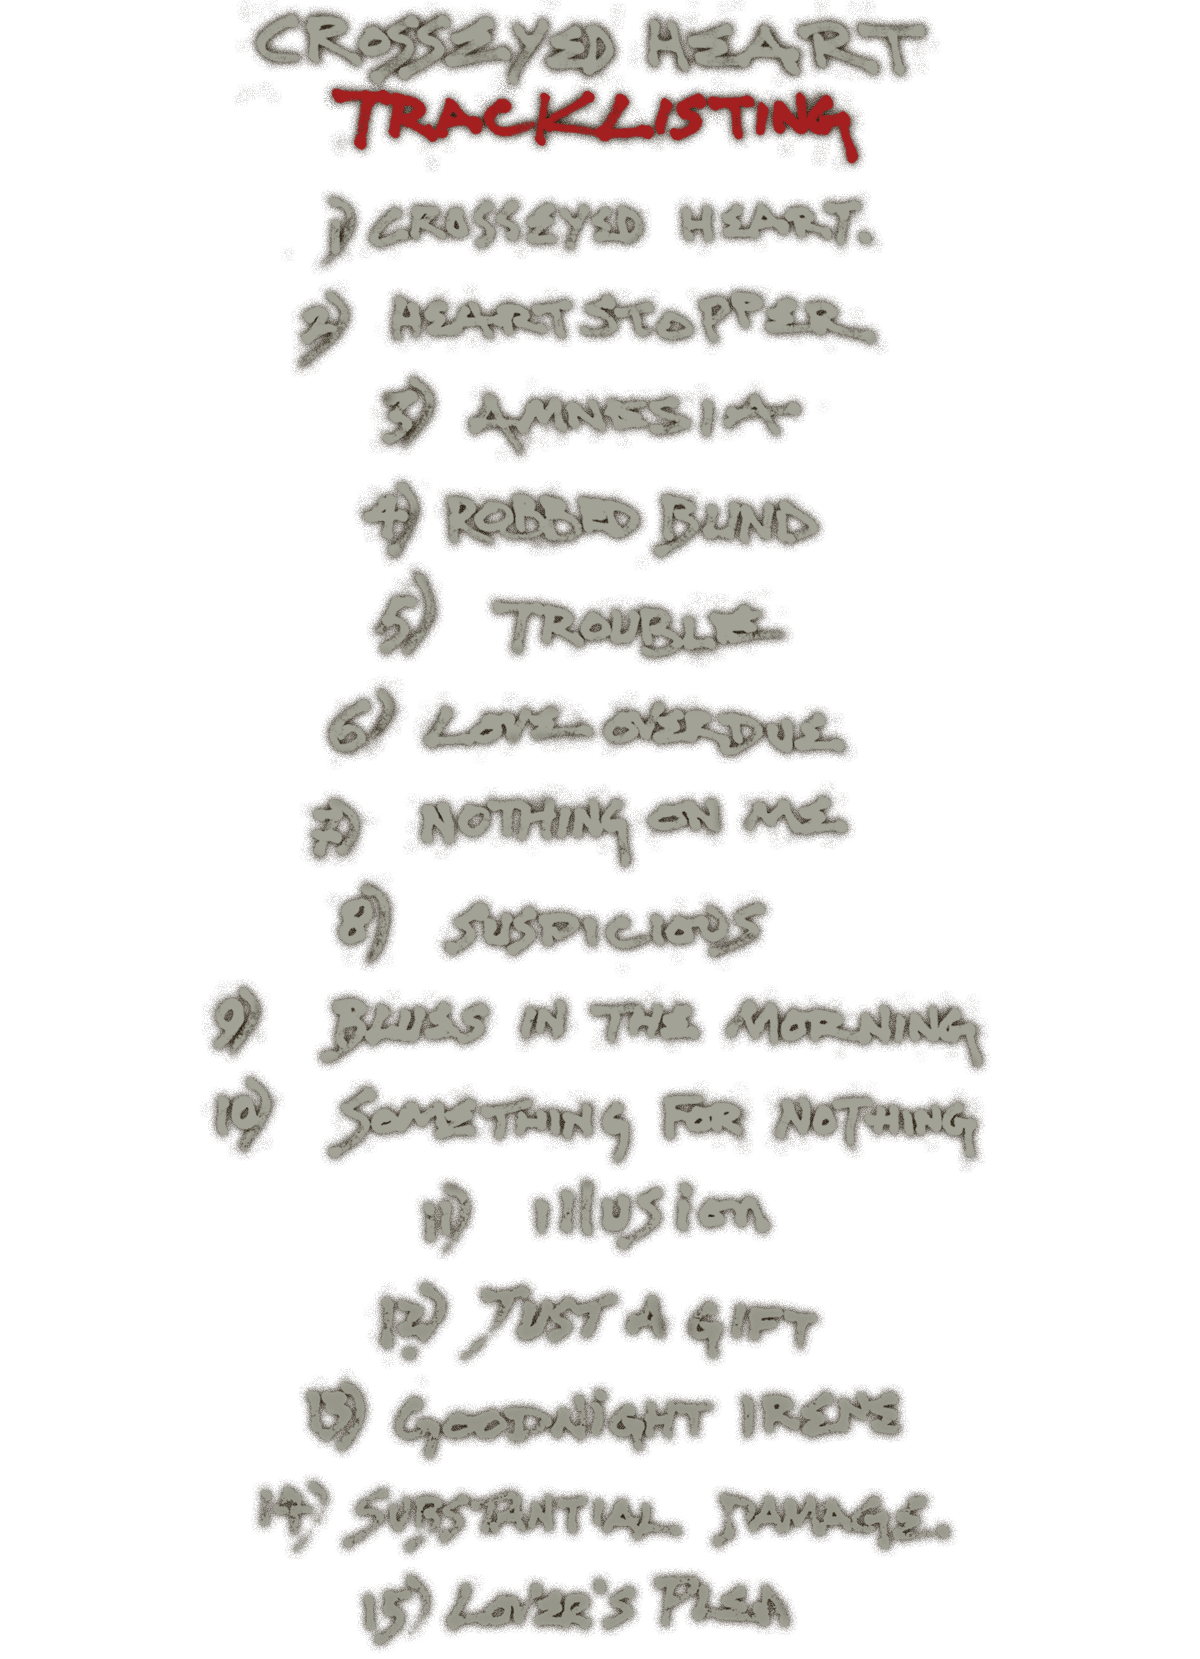 CROSSEYED HEART
TRACKLISTING
1) CROSSEYED HEART.
2) HEARTSTOPPER
3) AMNESIA
4) ROBBED BLIND
5) TROUBLE
6) LOVE OVERDUE
7) NOTHING ON ME
8) SUSPICIOUS
9) BLUES IN THE MORNING
10) SOMETHING FOR NOTHING
11) illusion
12) JUST A GIFT
13) GOODNiGHT IRENE
14) SUBSTANTIAL DAMAGE.
15) LOVER'S PLEA